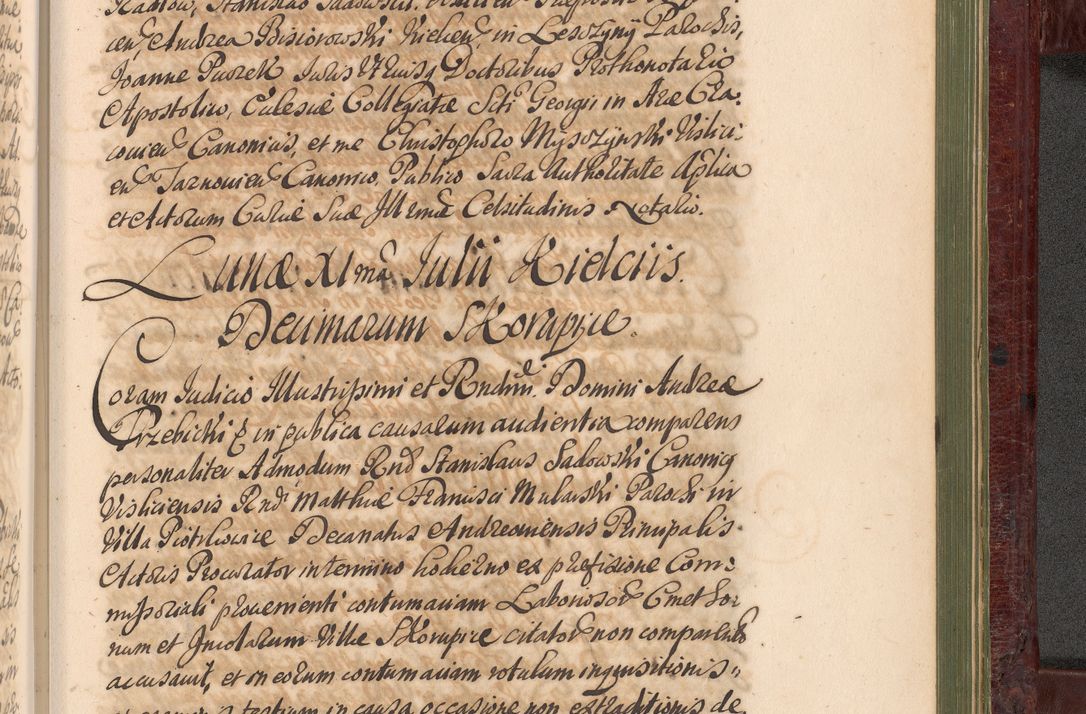 cen, Andrea Bisiorowski Kielcen, in Leszyny Parochis,
Joanne Purzek Juris Utriusq Doctoribus Prothonotario
Apostolico, Eclesiæ Collegiatæ Scti Georgii in Arce Cra-
covien Canonicis, et me Christophoro Myszyński Vislici
en Tarnovien Canonico, Publico Sacra Authoritate Aplica
et Actorum Curiæ Suæ Illmæ Celsitudinis Notario.
Lunæ XI ma Julii Kielciis.
Decimarum Skorupice.
Coram Judicio Illustrissimi et Rndmi Domini Andreæ
Trzebicki & in publica causarum audientia comparens
personaliter Admodum Rnd Stanislaus Sadowski Canonicq
Visliciensis Rndi Matthiæ Francisci Mularski Parochi in
Villa Piotrkowice Decanatus Andreoviensis Principalis
Actoris Procurator in termino hodierno ex præfixione Com-
missoriali provenienti contumaciam Laboriosor Cmethor
num et Incolarum Villæ Skorupice citator non comparen
accusavit, et in eorum contumaciam rotulum inquisitionis
testium in causa occasione non extraditionis de